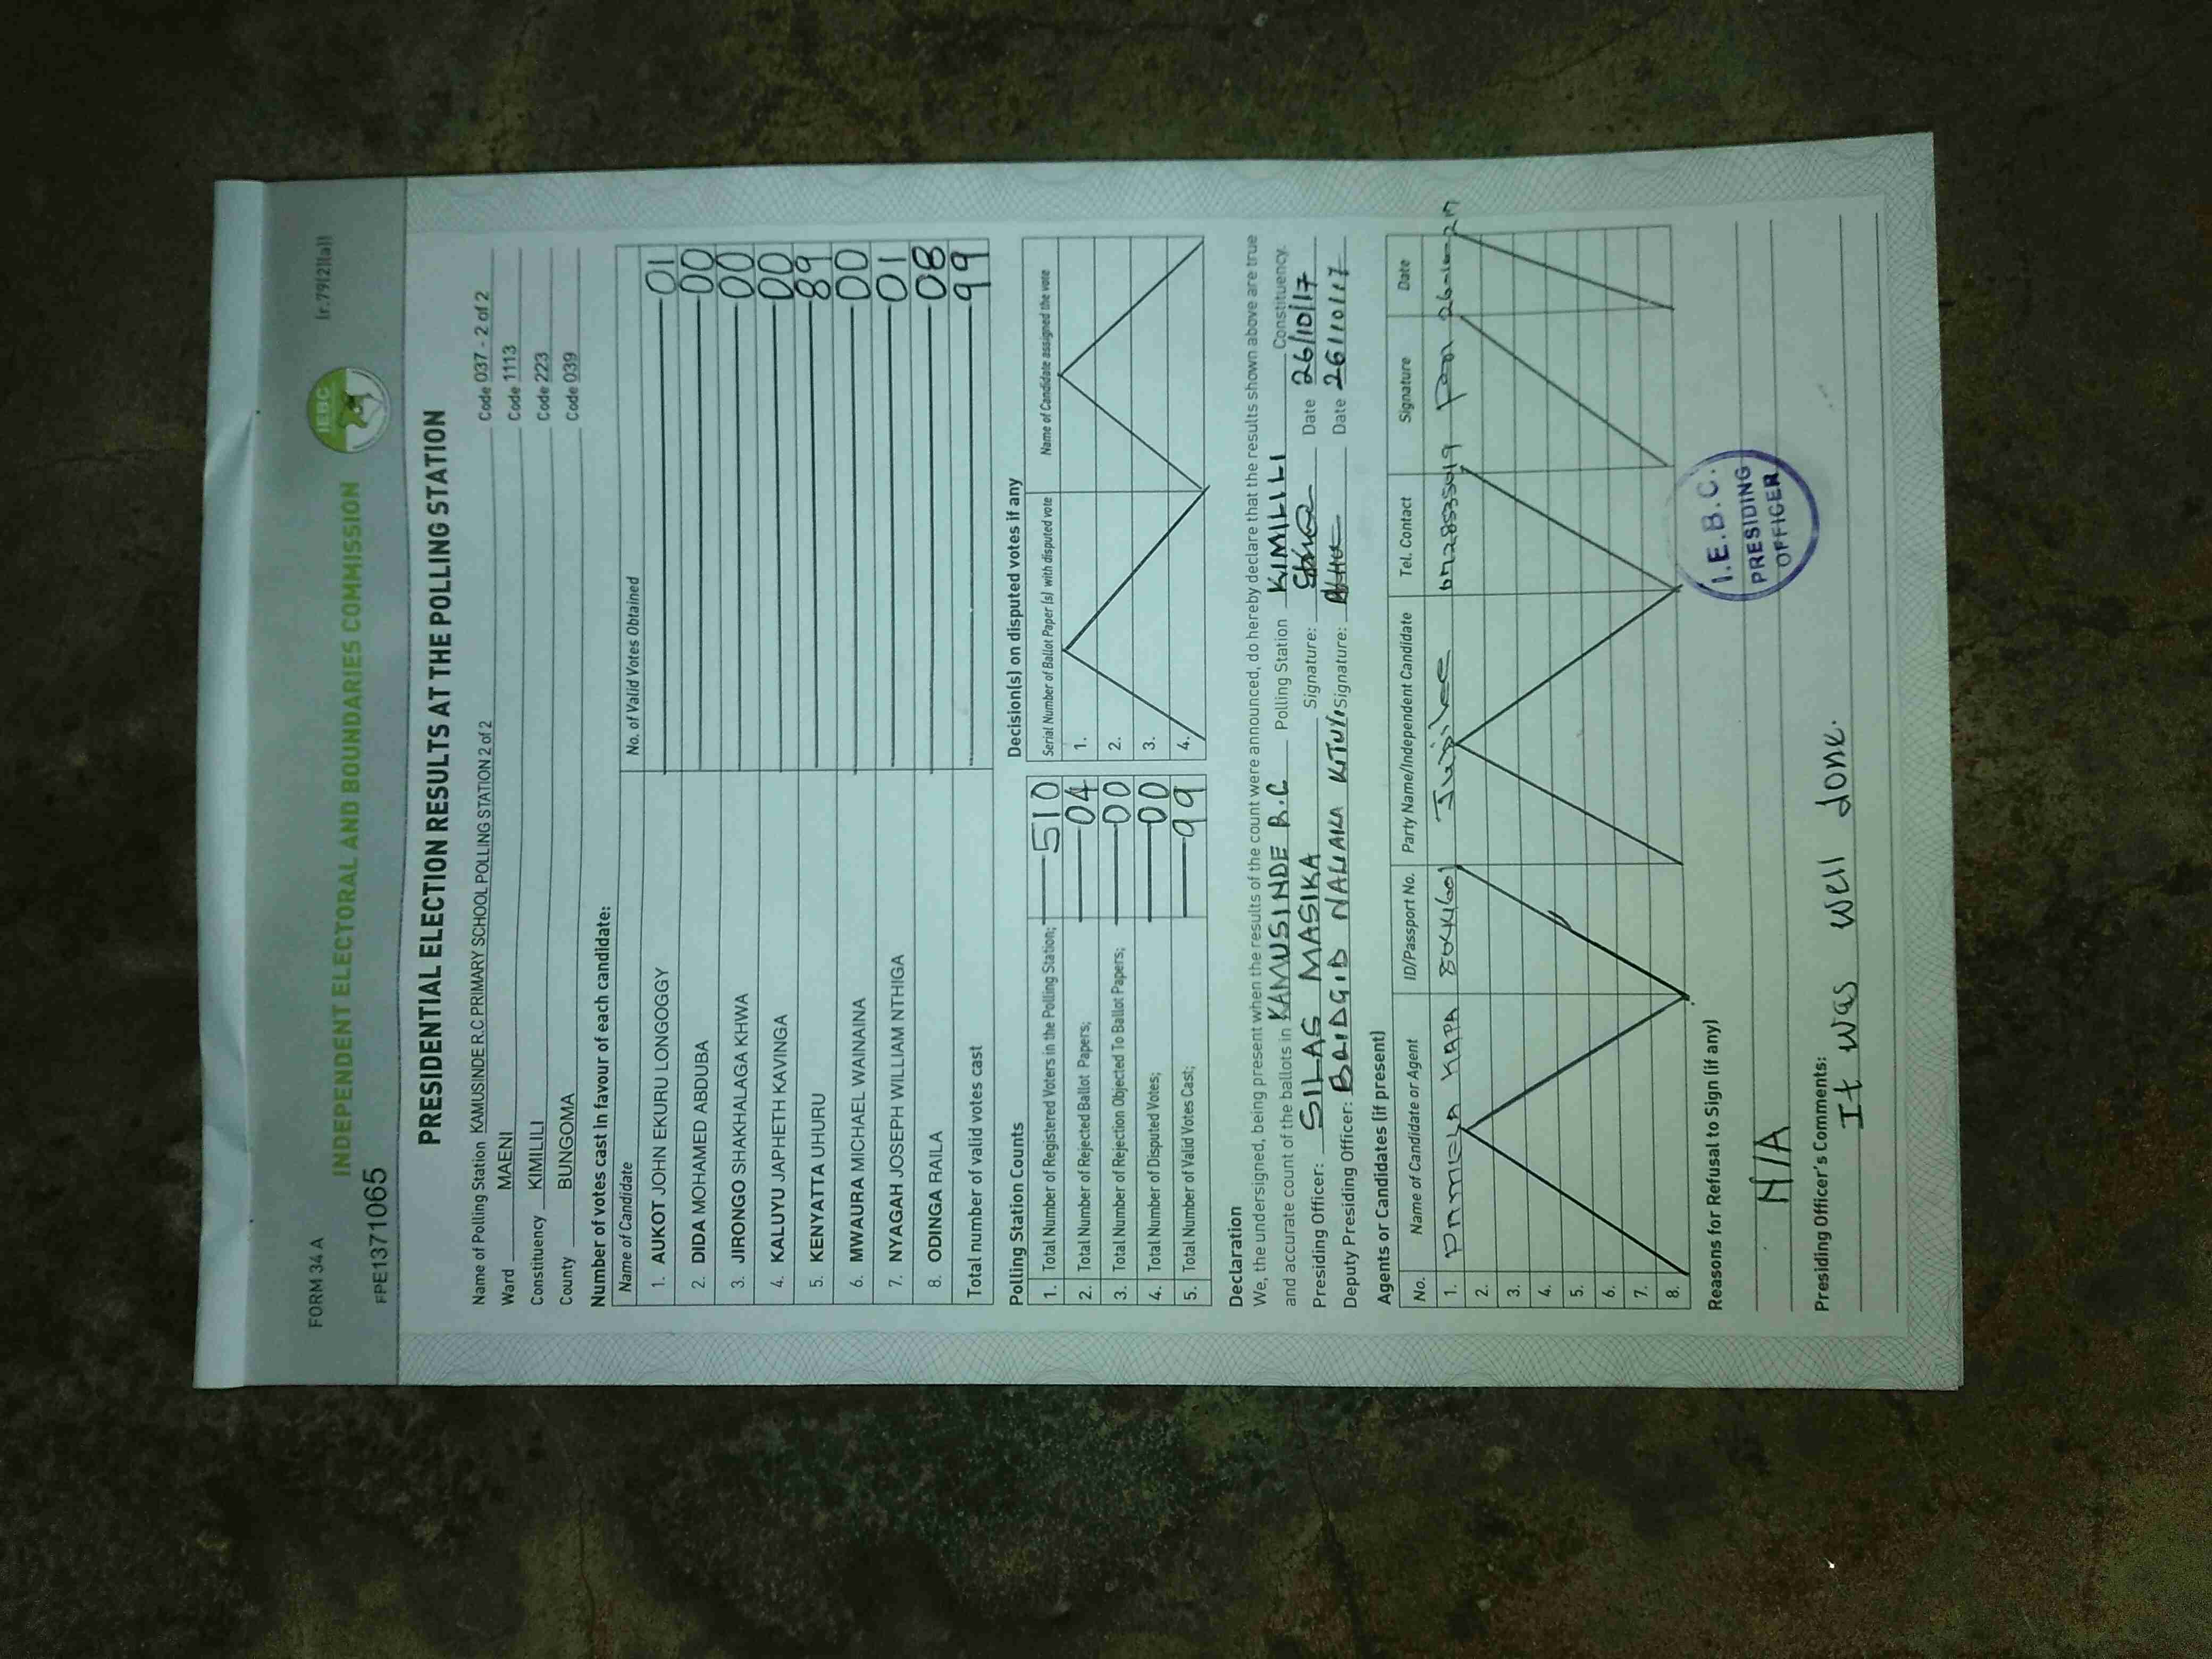 FORM 34 A
(r.79(2)(a))
INDEPENDENT ELECTORAL AND BOUNDARIES COMMISSION
IEBC
FPE1371065
PRESIDENTIAL ELECTION RESULTS AT THE POLLING STATION
Name of Polling Station KAMUSINDE R.C PRIMARY SCHOOL POLLING STATION 2 of 2 Code 037 - 2 of 2
Ward MAENI Code 1113
Constituency KIMILILI Code 223
County BUNGOMA Code 039
Number of votes cast in favour of each candidate:
Name of Candidate No. of Valid Votes Obtained
1. AUKOT JOHN EKURU LONGOGGY 01
2. DIDA MOHAMED ABDUBA 00
3. JIRONGO SHAKHALAGA KHWA 00
4. KALUYU JAPHETH KAVINGA 00
5. KENYATTA UHURU 89
6. MWAURA MICHAEL WAINAINA 00
7. NYAGAH JOSEPH WILLIAM NTHIGA 01
8. ODINGA RAILA 08
Total number of valid votes cast 99
Polling Station Counts
1. Total Number of Registered Voters in the Polling Station; 510
2. Total Number of Rejected Ballot Papers; 04
3. Total Number of Rejection Objected To Ballot Papers; 00
4. Total Number of Disputed Votes; 00
5. Total Number of Valid Votes Cast; 99
Decision(s) on disputed votes if any
Serial Number of Ballot Paper (s) with disputed vote Name of Candidate assigned the vote
1.
2.
3.
4.
Declaration
We, the undersigned, being present when the results of the count were announced, do hereby declare that the results shown above are true
and accurate count of the ballots in KAMUSINDE R.C Polling Station KIMILILI Constituency.
Presiding Officer: SILAS MASIKA Signature: Date 26/10/17
Deputy Presiding Officer: BRIDGID NALIAKA KITUI Signature: Date 26/10/17
Agents or Candidates (if present)
No. Name of Candidate or Agent ID/Passport No. Party Name/Independent Candidate Tel. Contact Signature Date
1. PAMELA Jubilee
2.
3.
4.
5.
6.
7.
8.
I.E.B.C.
PRESIDING
OFFICER
Reasons for Refusal to Sign (if any)
N/A
Presiding Officer's Comments:
It was well done.